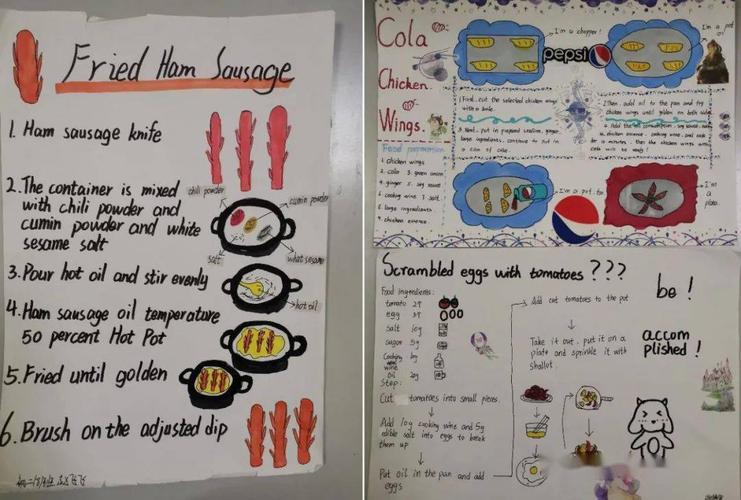 Fried Ham Sausage
1. Ham sausage knife
2. The container is mixed
with chili powder and
cumin powder and white
sesame salt
chili powder
cumin powder
salt
3. Pour hot oil and stir evenly
hot oil
4. Ham sausage oil temperature
50 percent Hot Pot
5. Fried until golden
6. Brush on the adjusted dip
Cola
Chicken
Wings.
I'm a chopper!
pepsi
I'm a pot
1. First, cut the selected chicken wings
with a knife.
2. Then, add oil to the pan and fry
chicken wings until golden on both sides
3. Next, put in prepared scallion, ginger,
large ingredients, continue to put in
a can of coke
Food preparation
1. chicken wings
2. cola 3. green onion
4. ginger 5. soy sauce
6. cooking wine 7. salt
8. large ingredients
9. chicken essence
I'm a pot, to
I'm
a
plate.
Scrambled eggs with tomatoes ???
Food ingredients:
tomato 2个
egg 3个
salt 10g
sugar 5g
Cooking
wine
oil 20g
Step:
Cut tomatoes into small pieces.
Add 10g cooking wine and 5g
edible salt into eggs to break
them up
Put oil in the pan and add
eggs
Add cut tomatoes to the pot
Take it out, put it on a
plate and sprinkle it with
shallot.
be!
accom
plished!